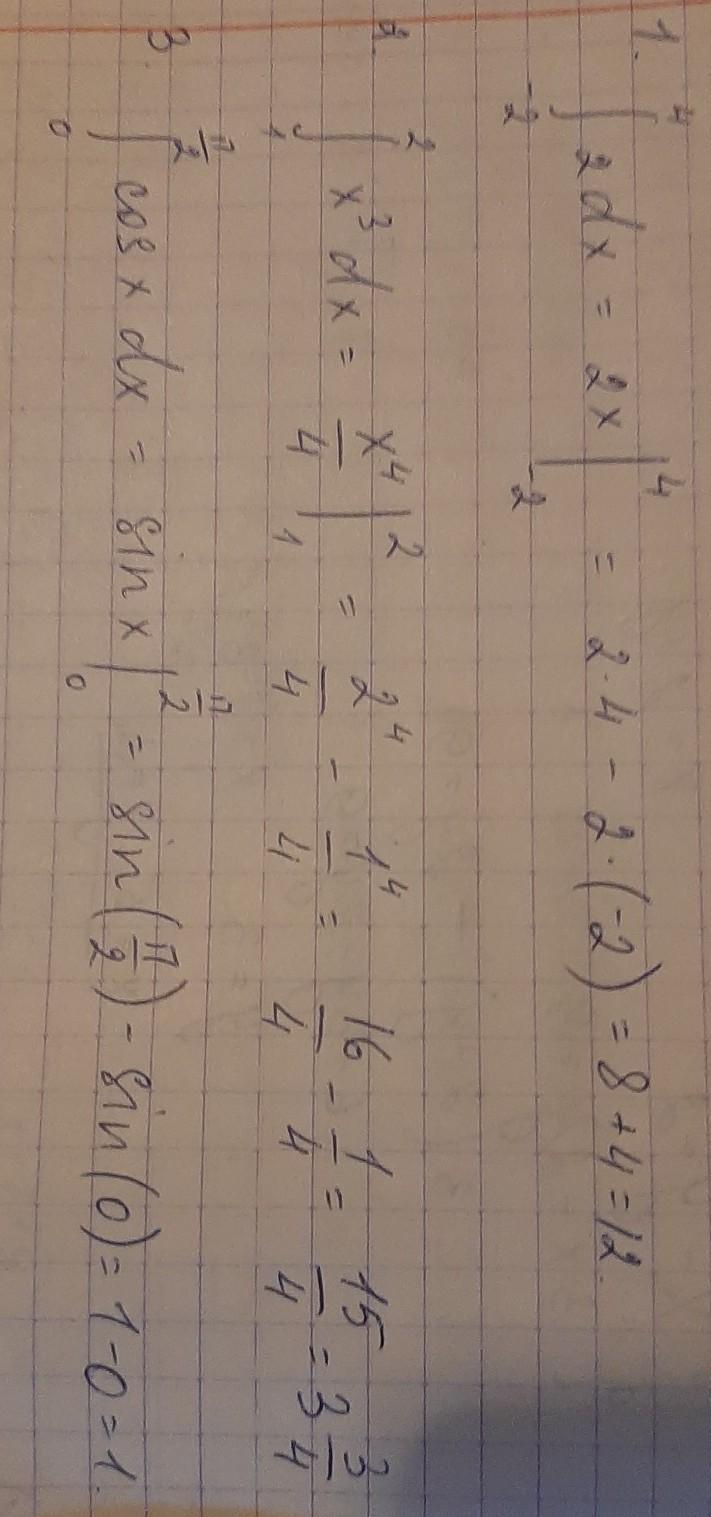 1. ∫₋₂⁴ 2dx = 2x |₋₂⁴ = 2·4 - 2·(-2) = 8+4=12.
2. ∫₁² x³dx = x⁴/4 |₁² = 2⁴/4 - 1⁴/4 = 16/4 - 1/4 = 15/4 = 3 3/4
3. ∫₀^(π/2) cos x dx = sin x |₀^(π/2) = sin(π/2) - sin(0) = 1-0=1.